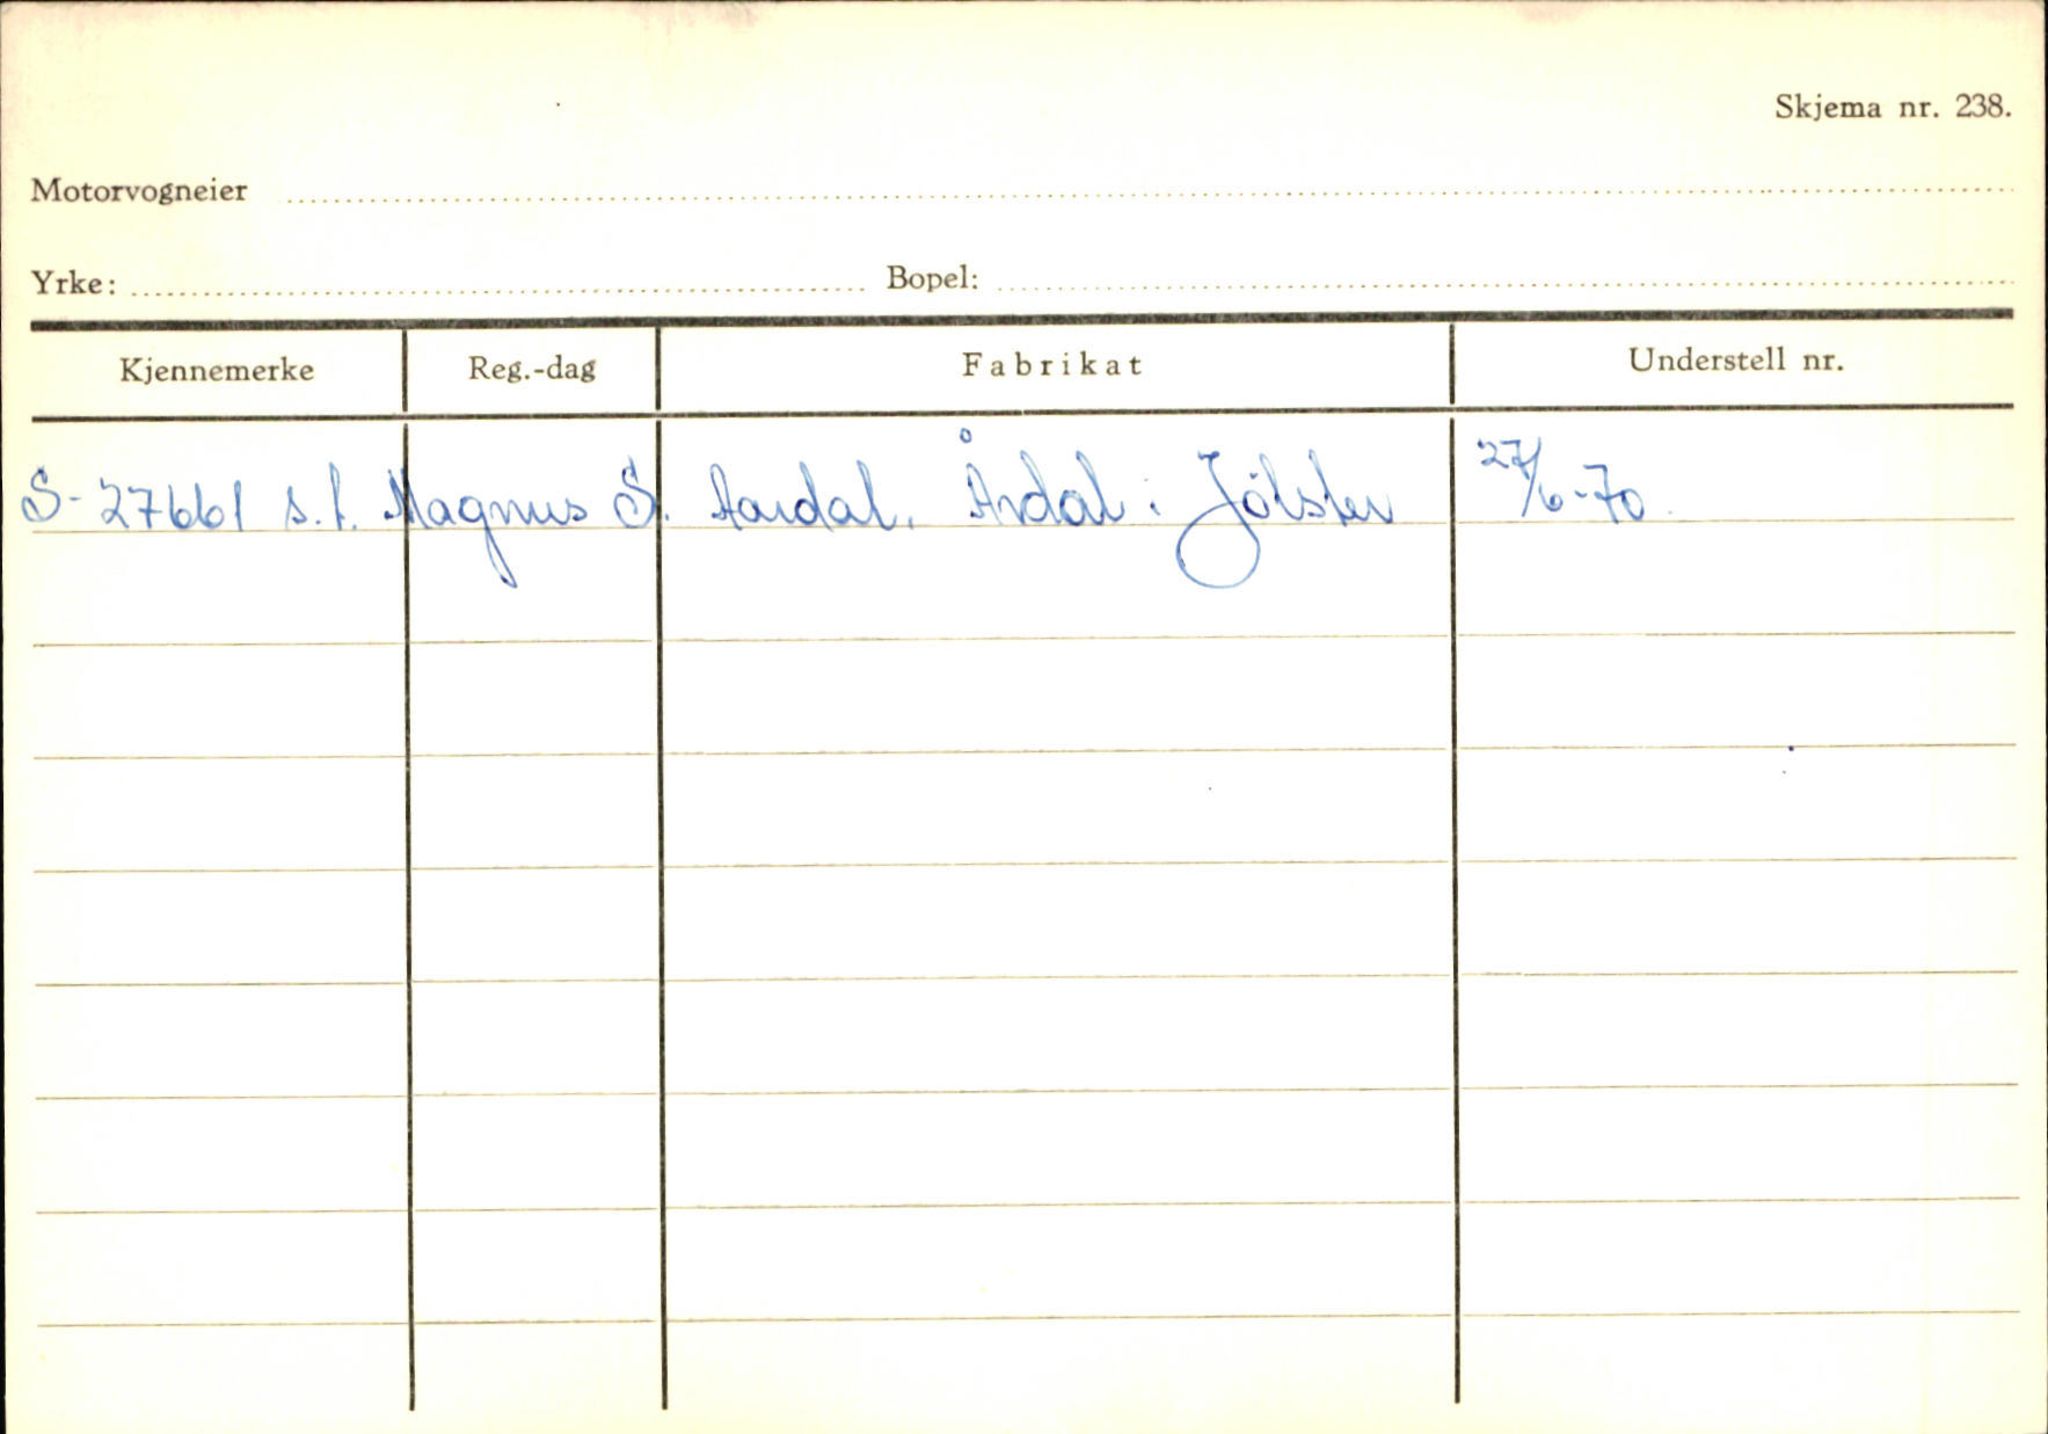 Skjema nr. 238.
Motorvogneier
Yrke: Bopel:
Kjennemerke Reg.-dag Fabrikat Understell nr.
S-27661 s.f. Magnus S. Aardal. Årdal i Jölster 27/6-70